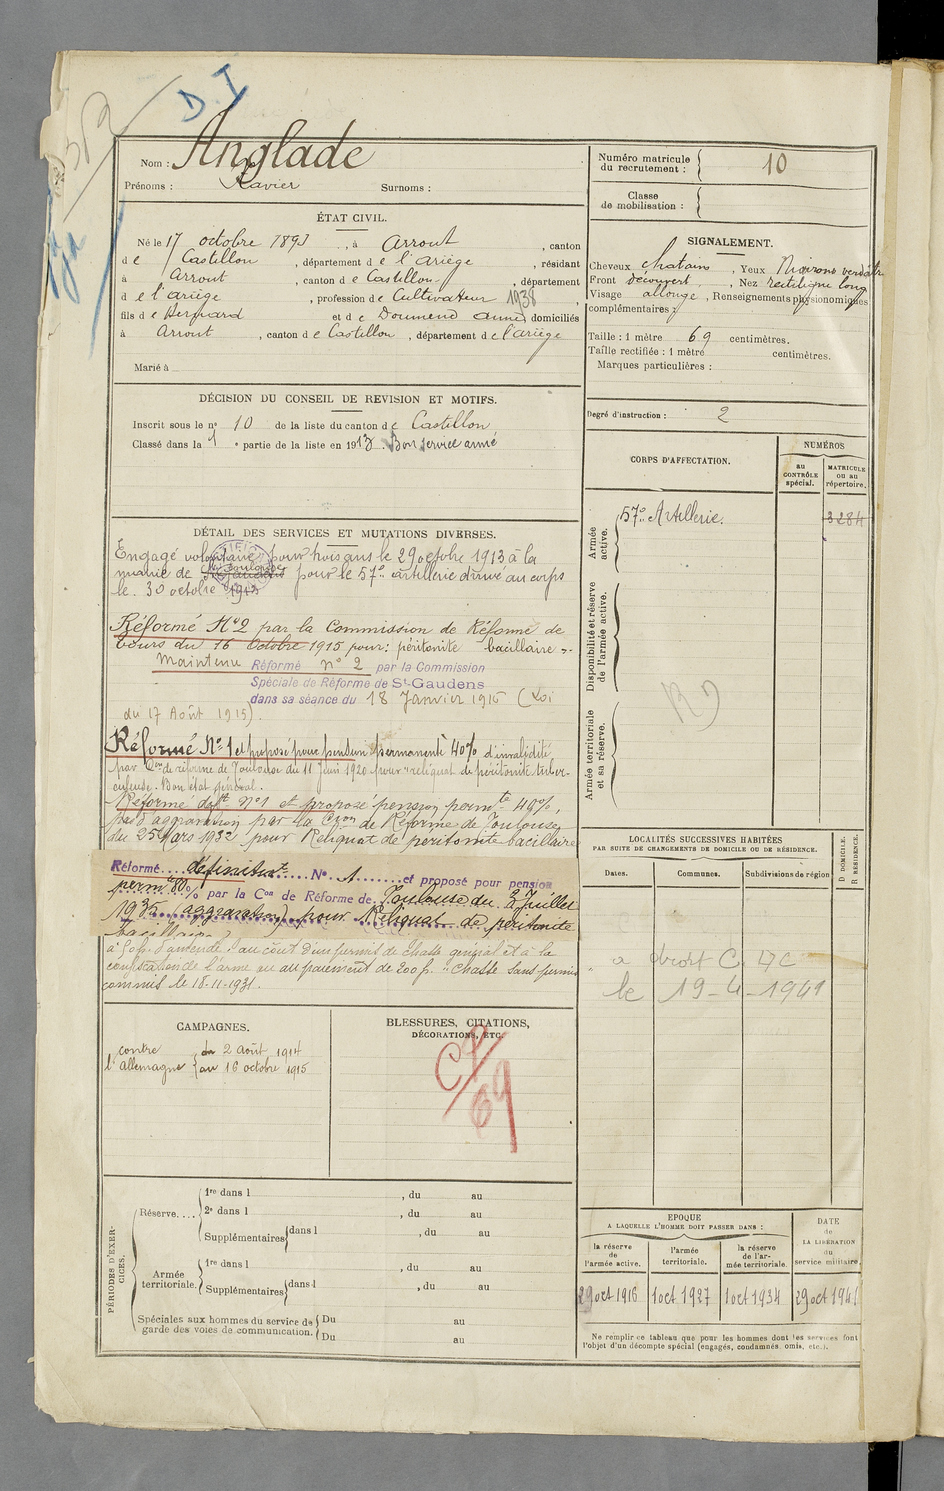 D. I
Nom : Anglade
Prénoms : Xavier Surnoms :
Numéro matricule
du recrutement : 10
Classe
de mobilisation :
ÉTAT CIVIL.
Né le 17 octobre 1893, à Arrout, canton
de Castillon, département de l'Ariège, résidant
à Arrout, canton de Castillon, département
de l'ariège, profession de Cultivateur 1938
fils de Bernard et de Doumenc anne domiciliés
à Arrout, canton de Castillon, département de l'ariège
Marié à
SIGNALEMENT.
Cheveux chatains, Yeux Marrons verdâtr
Front découvert, Nez rectiligne long
Visage allongé, Renseignements physionomiques
complémentaires :
Taille : 1 mètre 69 centimètres.
Taille rectifiée : 1 mètre centimètres.
Marques particulières :
Degré d'instruction : 2
DÉCISION DU CONSEIL DE REVISION ET MOTIFS.
Inscrit sous le n° 10 de la liste du canton de Castillon
Classé dans la 1e partie de la liste en 1913. Bon service armé
DÉTAIL DES SERVICES ET MUTATIONS DIVERSES.
Engagé volontaire pour trois ans le 29 octobre 1913 à la
mairie de pour le 57e artillerie arrivé au corps
le 30 octobre 1913
Réformé N° 2 par la Commission de Réforme de
Tours du 16 Octobre 1915 pour: péritonite bacillaire.-
Maintenu Réformé n° 2 par la Commission
Spéciale de Réforme de St-Gaudens
dans sa séance du 18 Janvier 1916 (Loi
du 17 Août 1915).
Réformé N° 1 et proposé pour pension permanente 40% d'invalidité
par Con de réforme de Toulouse du 11 Juin 1920 pour "reliquat de péritonite tuber-
culeuse. Bon état général.
Réformé déft n° 1 et proposé pension permte 40%,
pas d'aggravation par la Cion de Réforme de Toulouse
du 25 Mars 1932 pour Reliquat de péritonite bacillaire
Réformé définitivt N° 1 et proposé pour pension
permte 80% par la Con de Réforme de Toulouse du 2 Juillet
1935 (aggravation) pour Reliquat de péritonite
bacillaire
à 50 f. d'amende, au coût d'un permis de chasse général et à la
confiscation de l'arme ou au paiement de 200 f. "chasse sans permis
commis le 18-11-1931.
CORPS D'AFFECTATION.
NUMÉROS
au
CONTRÔLE
spécial.
MATRICULE
ou au
répertoire.
Armée
active.
57e Artillerie.
3284
Disponibilité et réserve
de l'armée active.
Armée territoriale
et sa réserve.
LOCALITÉS SUCCESSIVES HABITÉES
PAR SUITE DE CHANGEMENTS DE DOMICILE OU DE RÉSIDENCE.
D DOMICILE.
R RÉSIDENCE.
Dates. Communes. Subdivisions de région
a droit C.
le 19-4-1941
CAMPAGNES.
contre
l'allemagne
du 2 août 1914
au 16 octobre 1915
BLESSURES, CITATIONS,
DÉCORATIONS, ETC.
CP
69
PÉRIODES D'EXER-
CICES.
Réserve....
1re dans l , du au
2e dans l , du au
Supplémentaires dans l , du au
Armée
territoriale.
1re dans l , du au
Supplémentaires dans l , du au
Spéciales aux hommes du service de
garde des voies de communication.
Du au
Du au
EPOQUE
A LAQUELLE L'HOMME DOIT PASSER DANS :
la réserve
de
l'armée active.
l'armée
territoriale.
la réserve
de l'ar-
mée territoriale.
DATE
de
LA LIBÉRATION
du
service militaire.
29 oct 1916 1 oct 1927 1 oct 1934 29 oct 1941
Ne remplir ce tableau que pour les hommes dont les services font
l'objet d'un décompte spécial (engagés, condamnés, omis, etc.).